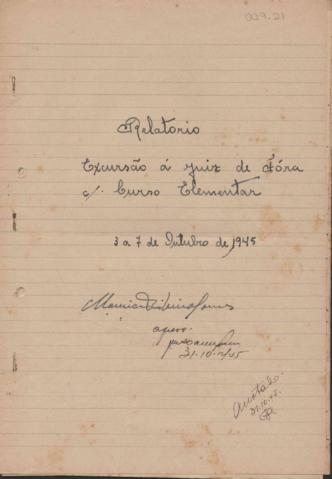 009.21
Relatorio
Excursão á Juiz de Fóra
c/ Curso Elementar
3 a 7 de Outubro de 1945
31.10.45
Anotado.
31.10.45.